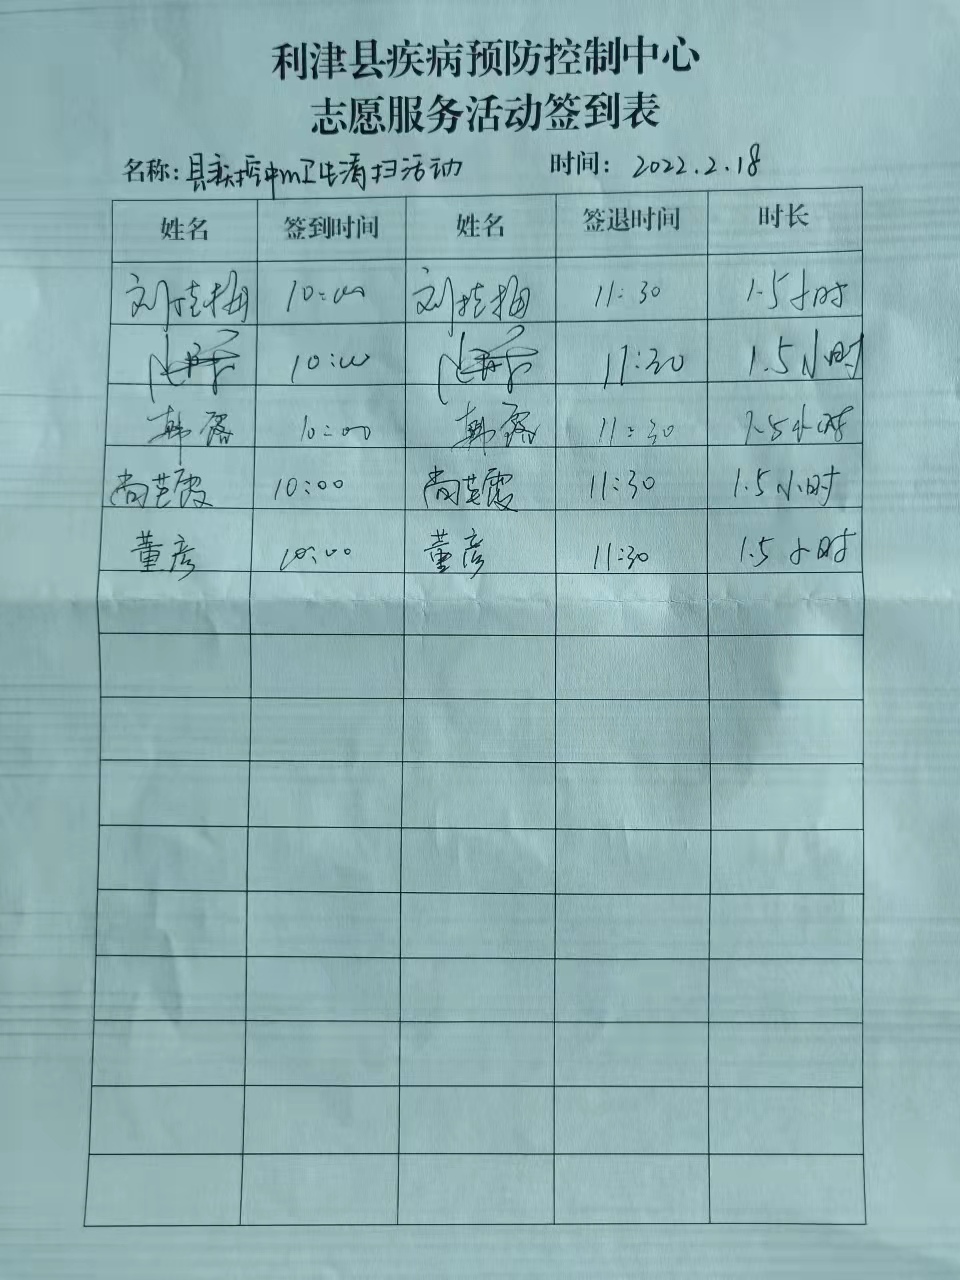 利津县疾病预防控制中心
志愿服务活动签到表
名称：县疾控中心卫生清扫活动 时间：2022.2.18
姓名 签到时间 姓名 签退时间 时长
刘桂梅 10:00 刘桂梅 11:30 1.5小时
10:00 11:30 1.5小时
韩露 10:00 韩露 11:30 1.5小时
尚芸霞 10:00 尚芸霞 11:30 1.5小时
董彦 10:00 董彦 11:30 1.5小时